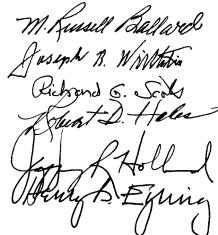 M. Russell Ballard
Joseph B. Wirthlin
Richard G. Scott
Robert D. Hales
Jeffrey R Holland
Henry B Eyring